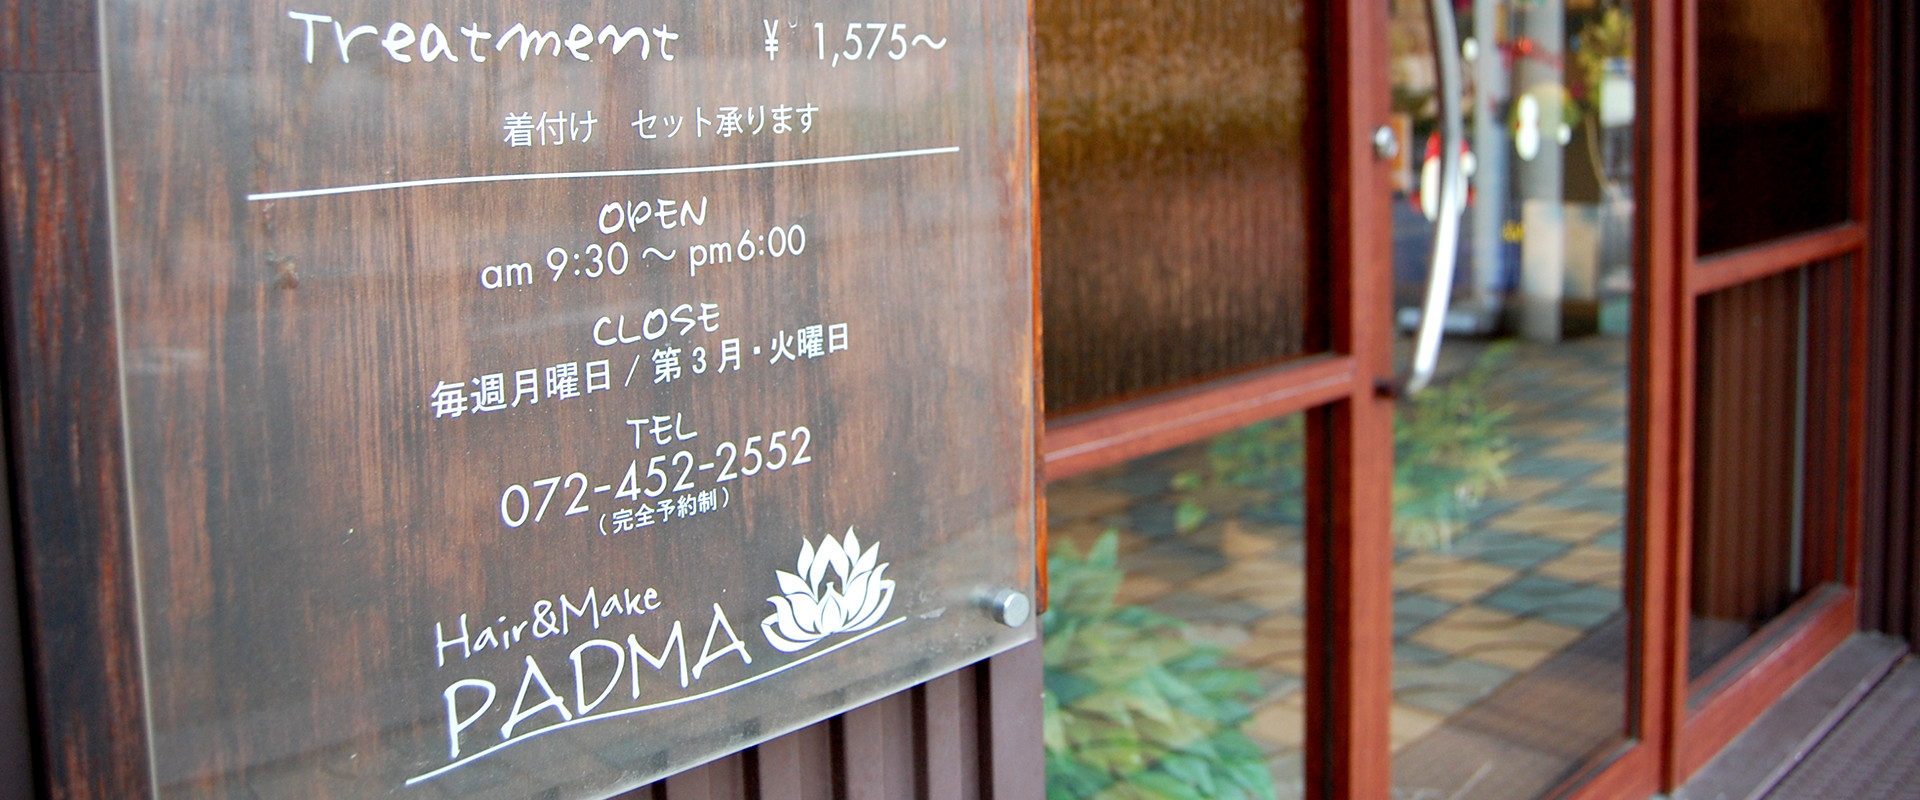 Treatment ¥ 1,575〜
着付け セット承ります
OPEN
am 9:30 〜 pm6:00
CLOSE
毎週月曜日 / 第3月・火曜日
TEL
072-452-2552
(完全予約制)
Hair&Make
PADMA